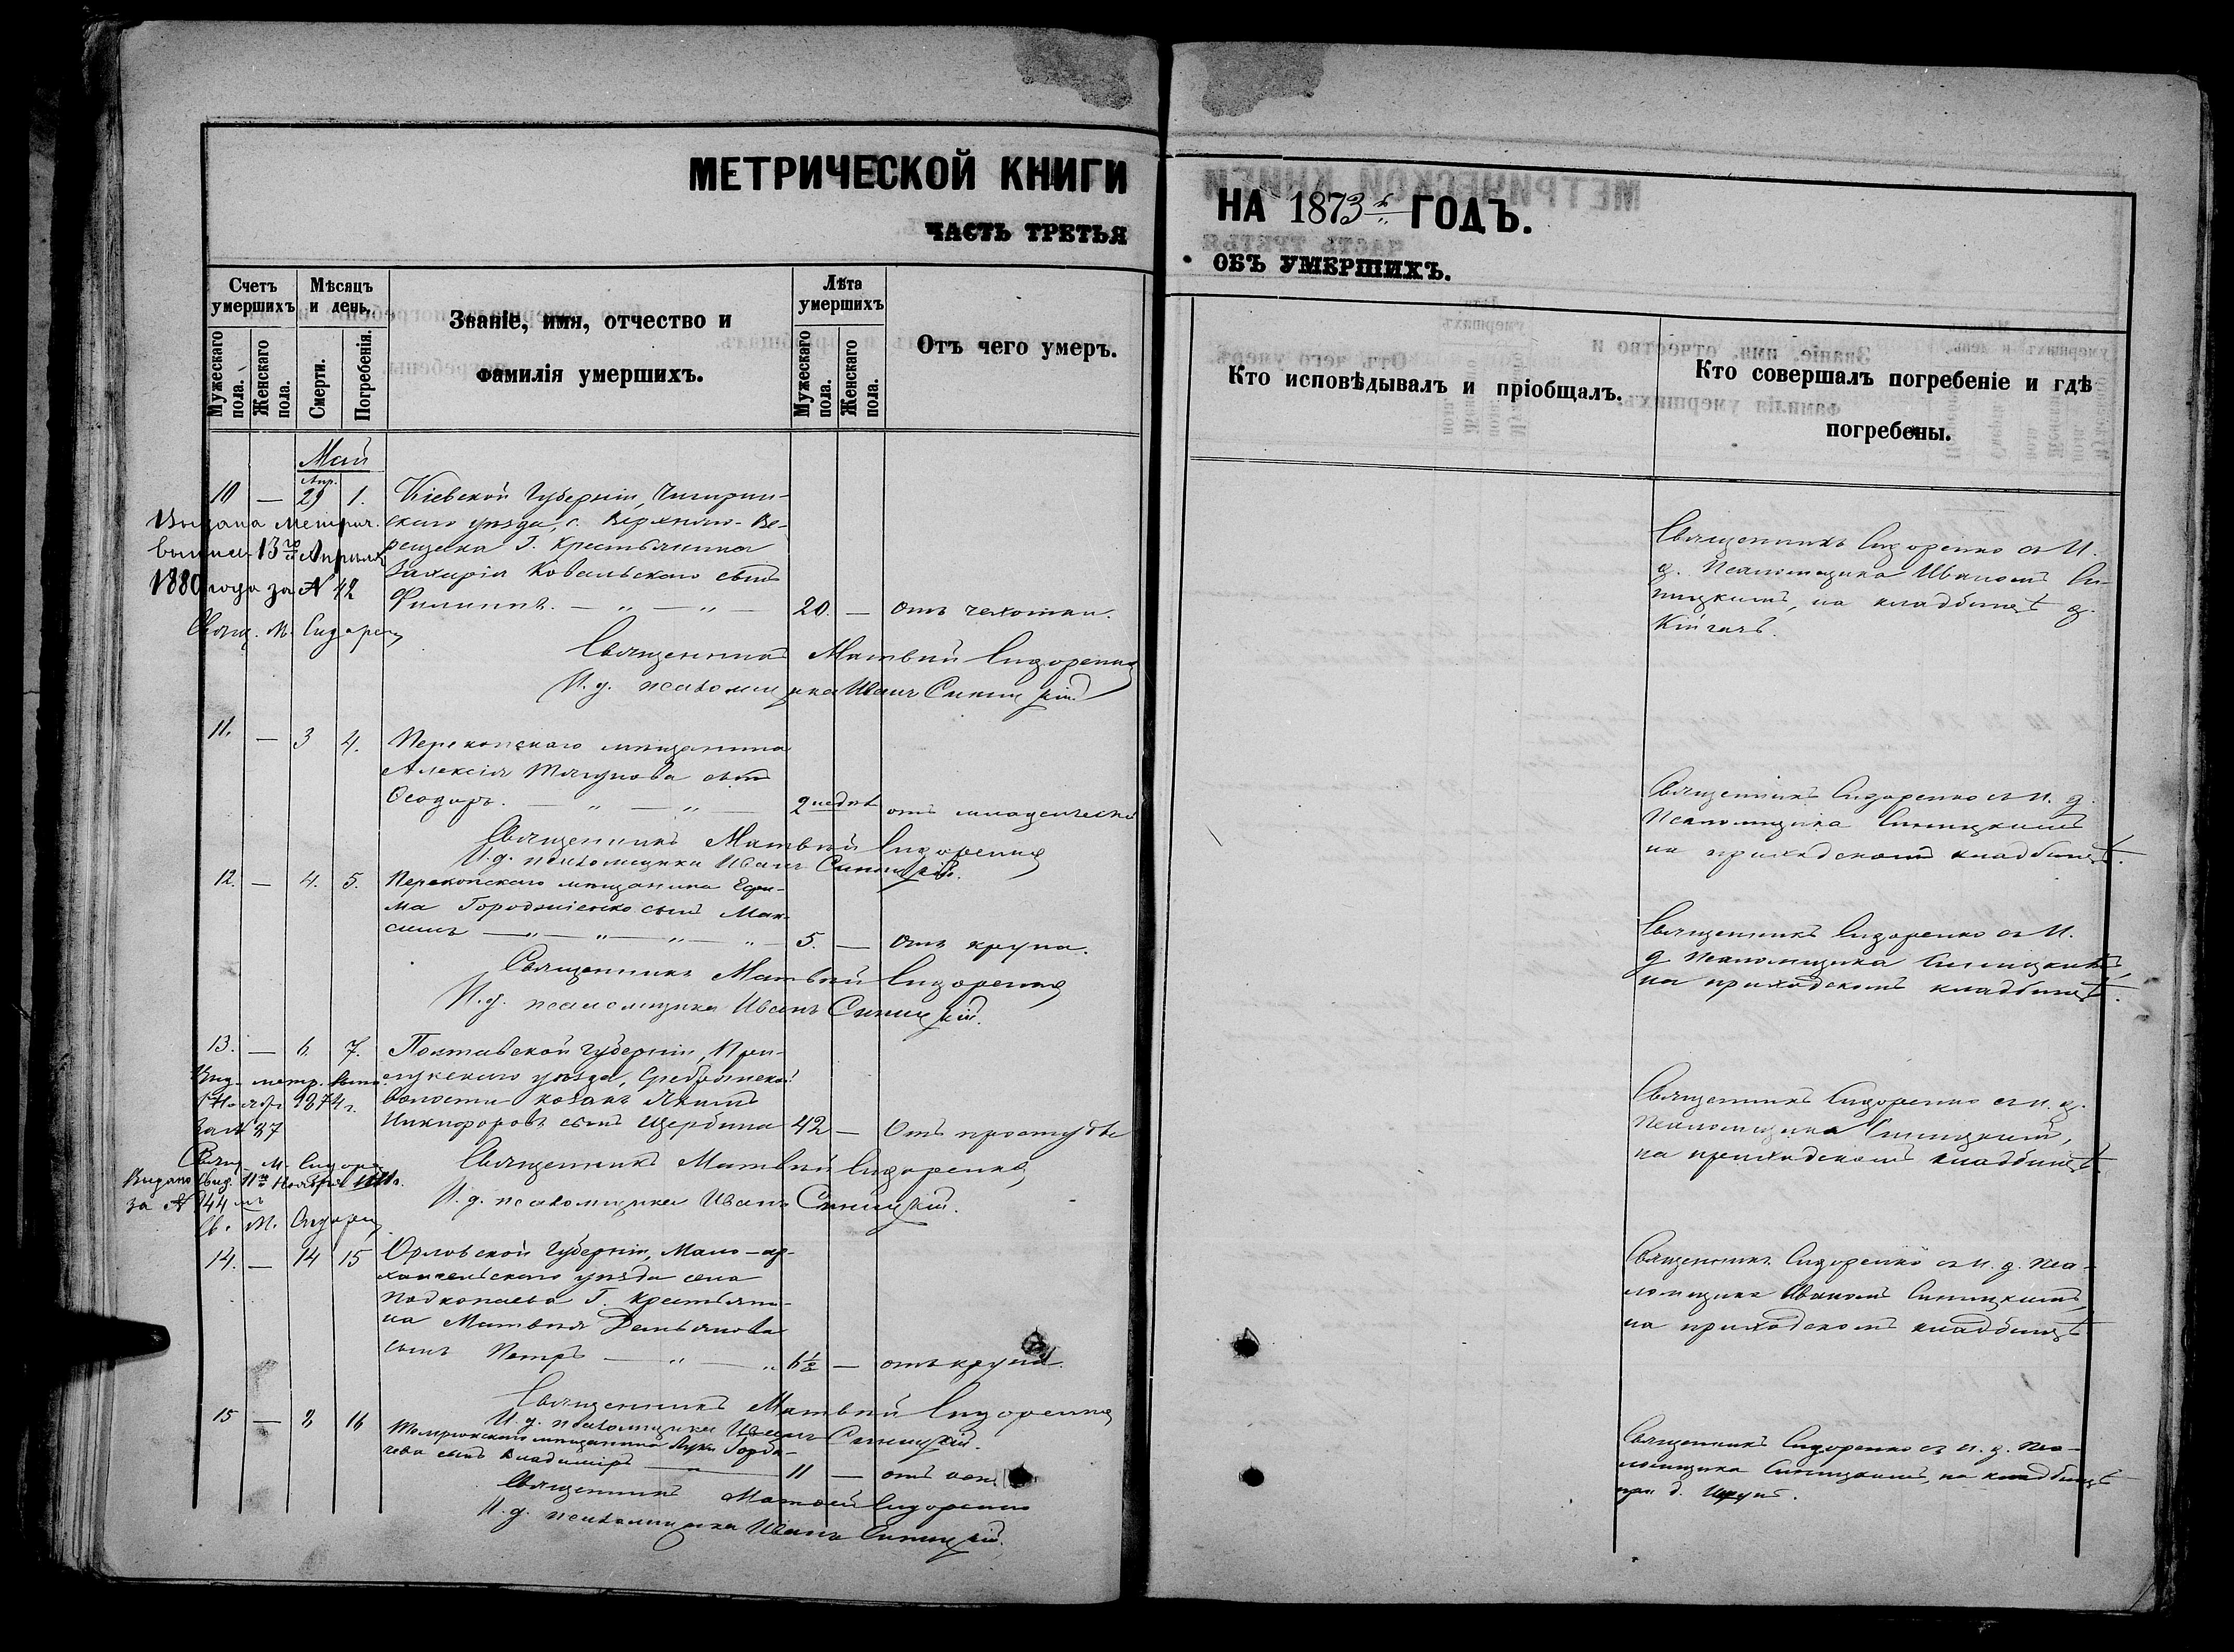 МЕТРИЧЕСКОЙ КНИГИ
ЧАСТЬ ТРЕТЬЯ
Счетъ умершихъ
Мѣсяцъ и день.
Званіе, имя, отчество и
фамилія умершихъ.
Лѣта умершихъ
Отъ чего умеръ.
Мужескаго пола.
Женскаго пола.
Смерти.
Погребенія.
Мужескаго пола.
Женскаго пола.
Май
Апр.
10 — 29 1. Кіевской Губерніи, Чигирин-
скаго уѣзда, с. Верхняго-Ве-
рещака Г. Крестьянина
Захарія Ковальскаго сынъ
Филиппъ. — „ — „ — 20. — Отъ чахотки.
Выдана метрич.
выпись 13го Апрѣля
1880 года за N 42
Свящ. М. Сидорен
Священникъ Матвѣй Сидоренко
И. д. псаломщика Иванъ Синицкій
11. — 3 4. Перекопскаго мѣщанина
Алексія сынъ
Ѳеодоръ. — „ — „ — 2 недѣл отъ младенческой
Священникъ Матвѣй Сидоренко
И. д. псаломщика Иванъ Синицкій.
12. — 4. 5. Перекопскаго мѣщанина Ефи-
ма Городниенко сынъ Мак-
симъ — „ — „ — „ — „ — 5. — Отъ крупа.
Священникъ Матвѣй Сидоренко
И. д. псаломщика Иванъ Синицкій.
13. — 6. 7. Полтавской Губерніи, При-
лукскаго уѣзда, Сребрянской
волости козакъ Якимъ
Никифоровъ сынъ Щербина 42 — Отъ простуды
Выд. метр. вып.
1874 г.
за N 37
Свящ. М. Сидорен
Священникъ Матвѣй Сидоренко
Выдано свид. 11го Ноября
за N 144
Св. М. Сидорен
И. д. псаломщика Иванъ Синицкій.
14. — 14 15 Орловской Губерніи, Мало-ар-
хангельскаго уѣзда села
Подкопаева Г. Крестьяни-
на Матвѣя Демьянова
сынъ Петръ — „ — „ 6½ — отъ крупа.
Священникъ Матвѣй Сидоренко
И. д. псаломщика Иванъ Синицкій.
15 — 16 мѣщанина Луки Горба-
чева сынъ Владиміръ — „ — 11 — отъ
Священникъ Матвѣй Сидоренко
И. д. псаломщика Иванъ Синицкій.
НА 1873й ГОДЪ.
ОБЪ УМЕРШИХЪ.
Кто исповѣдывалъ и пріобщалъ.
Кто совершалъ погребеніе и гдѣ
погребены.
Священникъ Сидоренко съ И.
д. Псаломщика Иваномъ Си-
ницкимъ, на кладбищѣ д.
Священникъ Сидоренко съ И. д.
Псаломщика Синицкимъ
на приходскомъ кладбищѣ.
Священникъ Сидоренко съ И.
д. Псаломщика Синицкимъ,
на приходскомъ кладбищѣ.
Священникъ Сидоренко съ и. д.
Псаломщика Синицкимъ,
на приходскомъ кладбищѣ.
Священникъ Сидоренко съ И. д. Пса-
ломщика Иваномъ Синицкимъ,
на приходскомъ кладбищѣ
Священникъ Сидоренко съ и. д. Пса-
ломщика Синицкимъ, на кладбищѣ
при д.